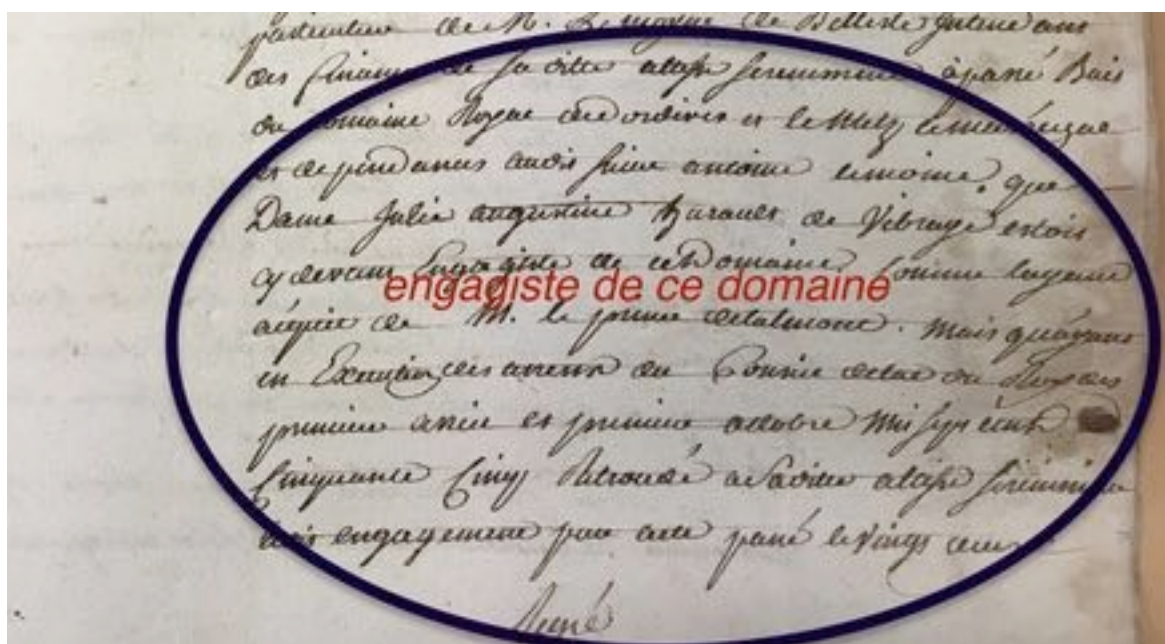 de M. de Belleisle Intendant
des finances de sa ditte altesse serenissime a passé Bail
du Domaine Royal de dordives et le Metz le marechal
et dependances audit sieur antoine Lemoine. que
Dame Julie augustine hurault de Vibraye estoit
cy devant Engagiste de ce Domaine, Comme layant
acquis de M. le prince detalmont. Mais quayant
en Execution des arrests du Conseil detat du Roy des
premier avril et premier octobre Mil sept cent
Cinquante Cinq Retrocedé a Saditte altesse serenissime
ledit engagement par acte passé le vingt
engagiste de ce domaine